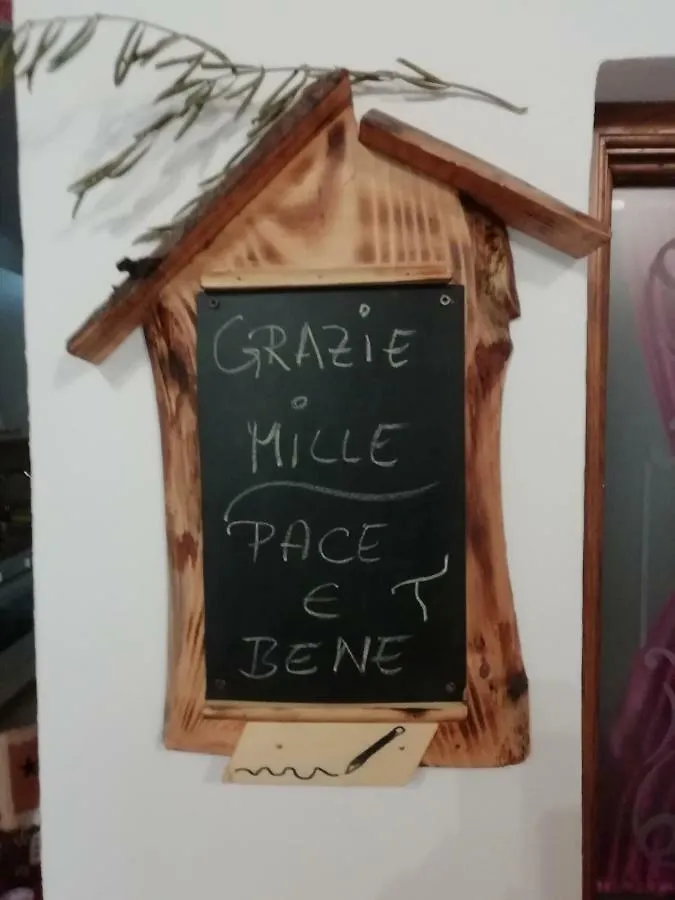 GRAZIE
MILLE
PACE
E T
BENE